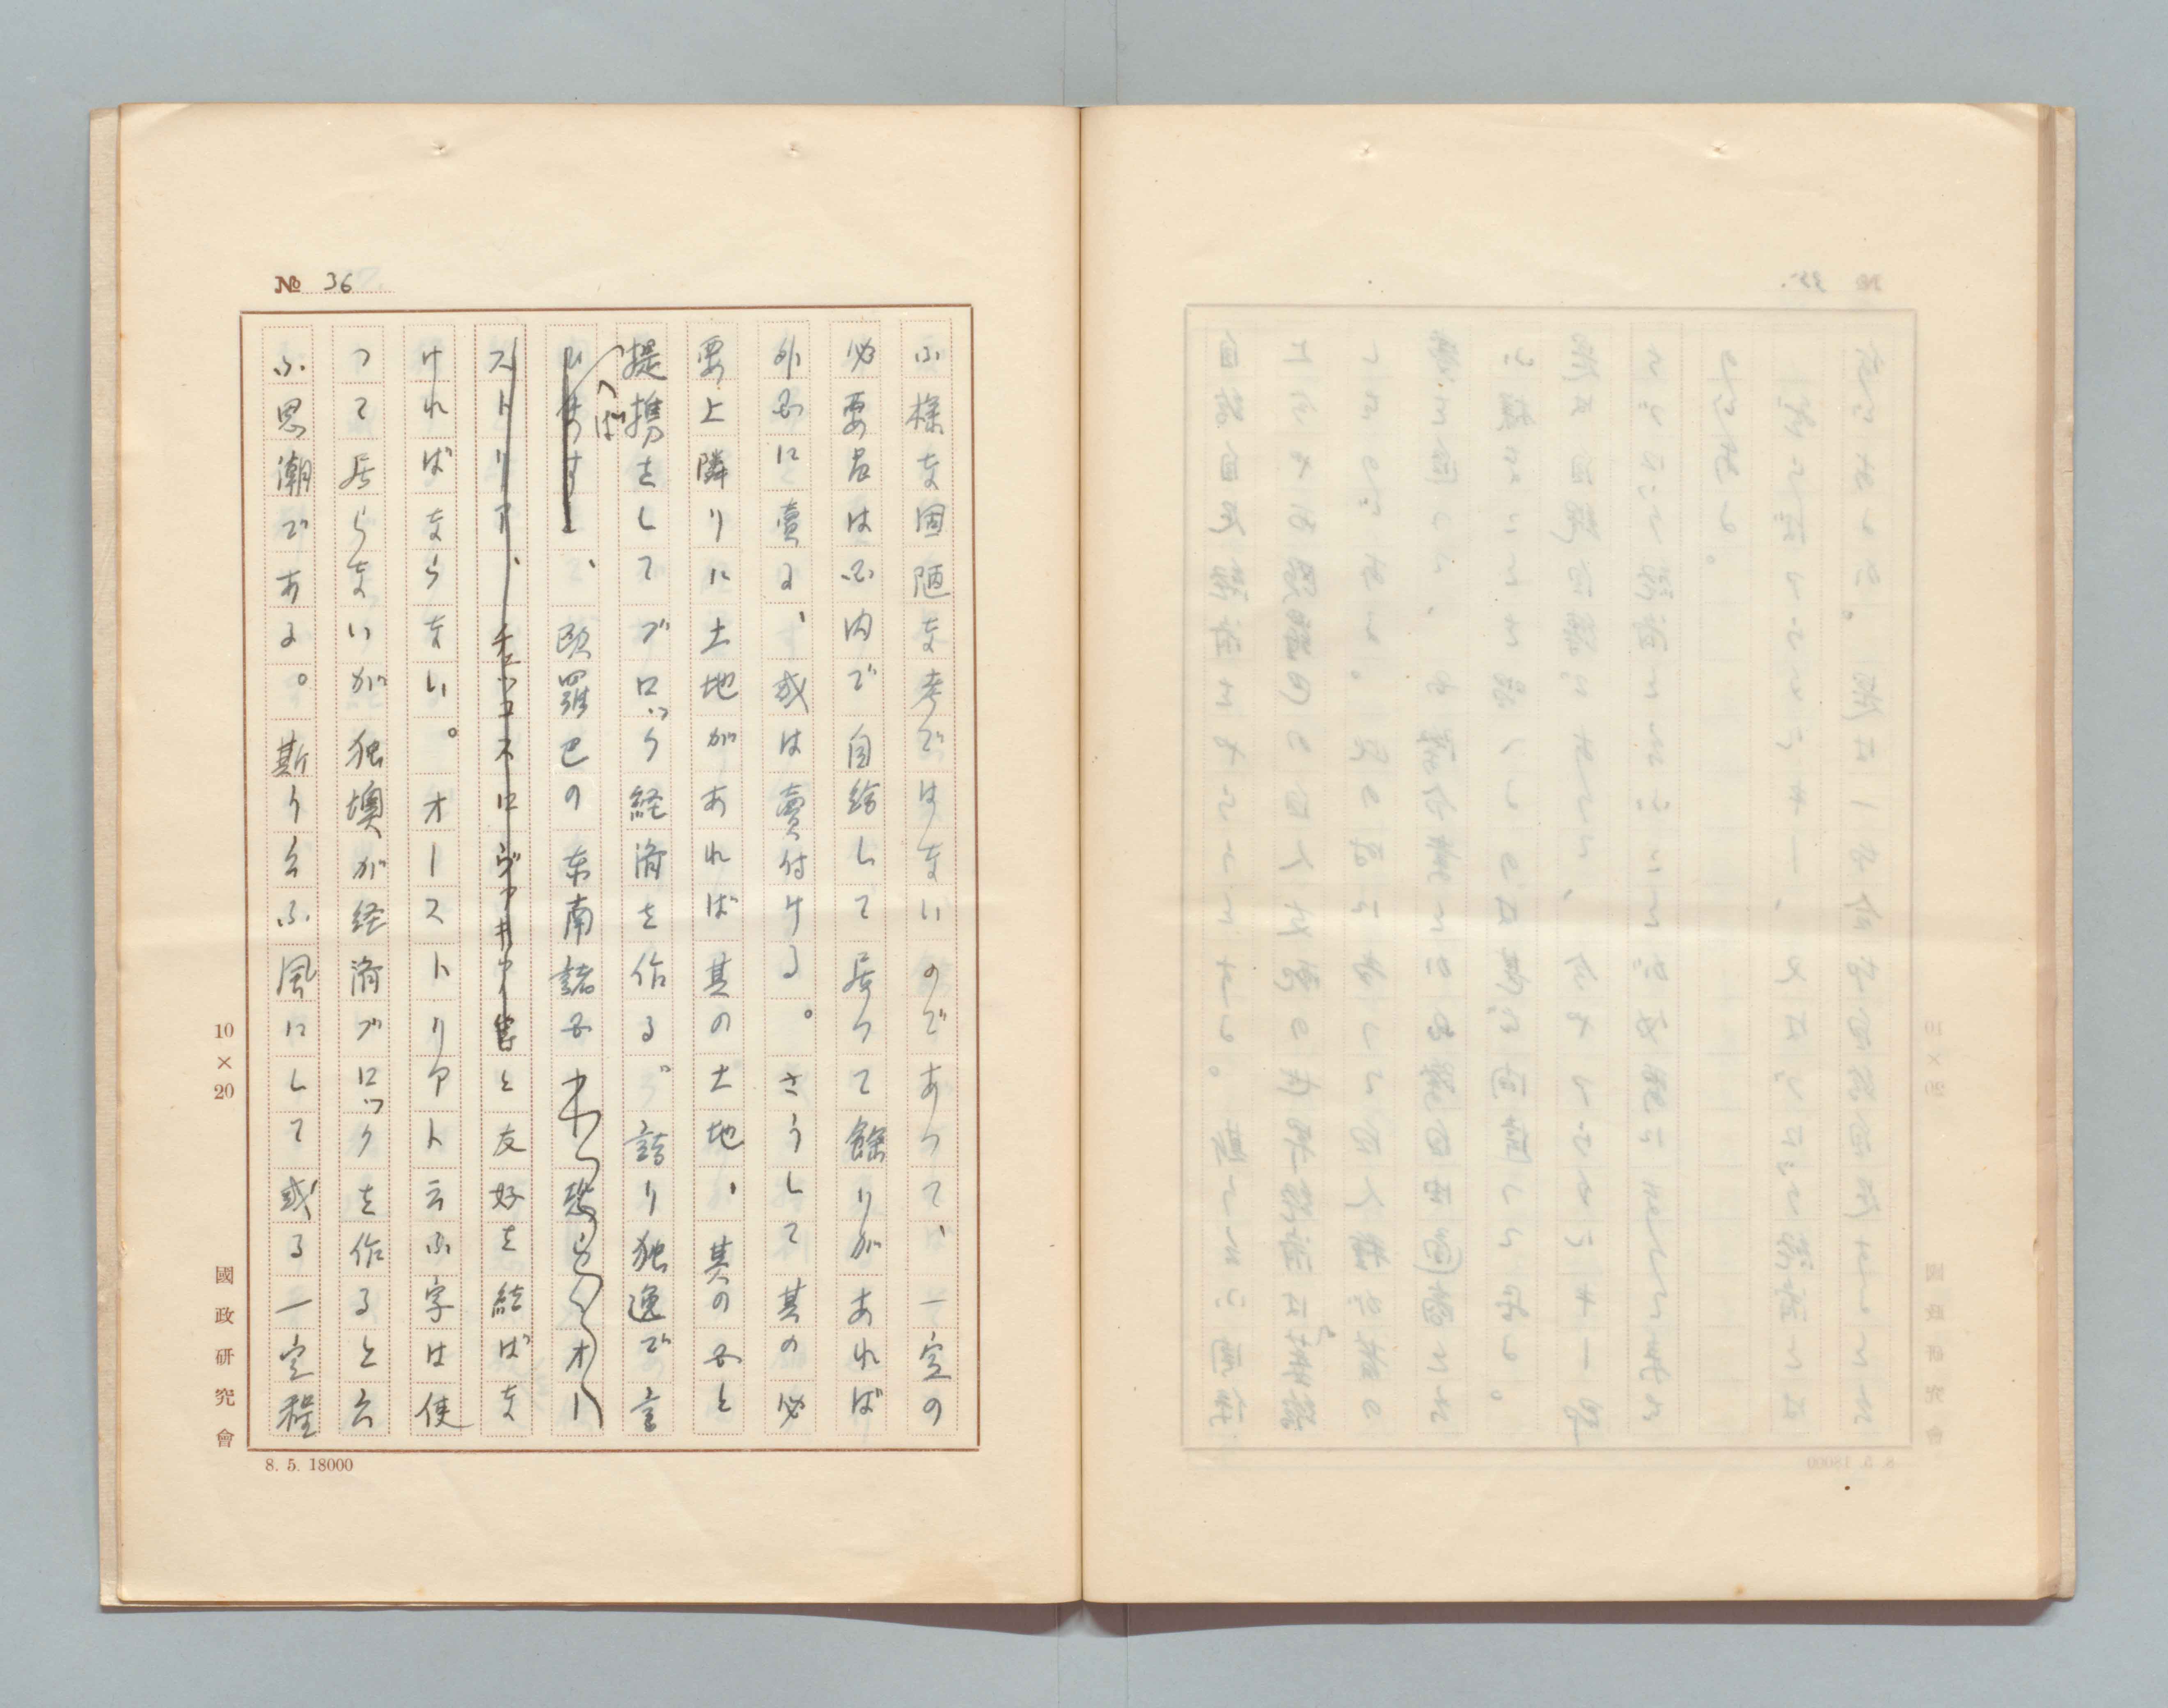 № 36
ふ様な固陋な考ではないのであつて、一定の
必要品は国内で自給して居つて餘りがあれば
外国に賣る、或は賣付ける。さうして其の必
要上隣りに土地があれば其の土地、其の国と
提携をしてブロック経済を作る。詰り独逸で言
へば
ひますと、欧羅巴の東南諸国
ストリア、チェッコスロヴァキア等と友好を結ばな
ければならない。オーストリアト云ふ字は使
つて居らないが独墺が経済ブロックを作ると云
ふ思潮である。斯う云ふ風にして或る一定程
10×20
國政研究會
8. 5. 18000